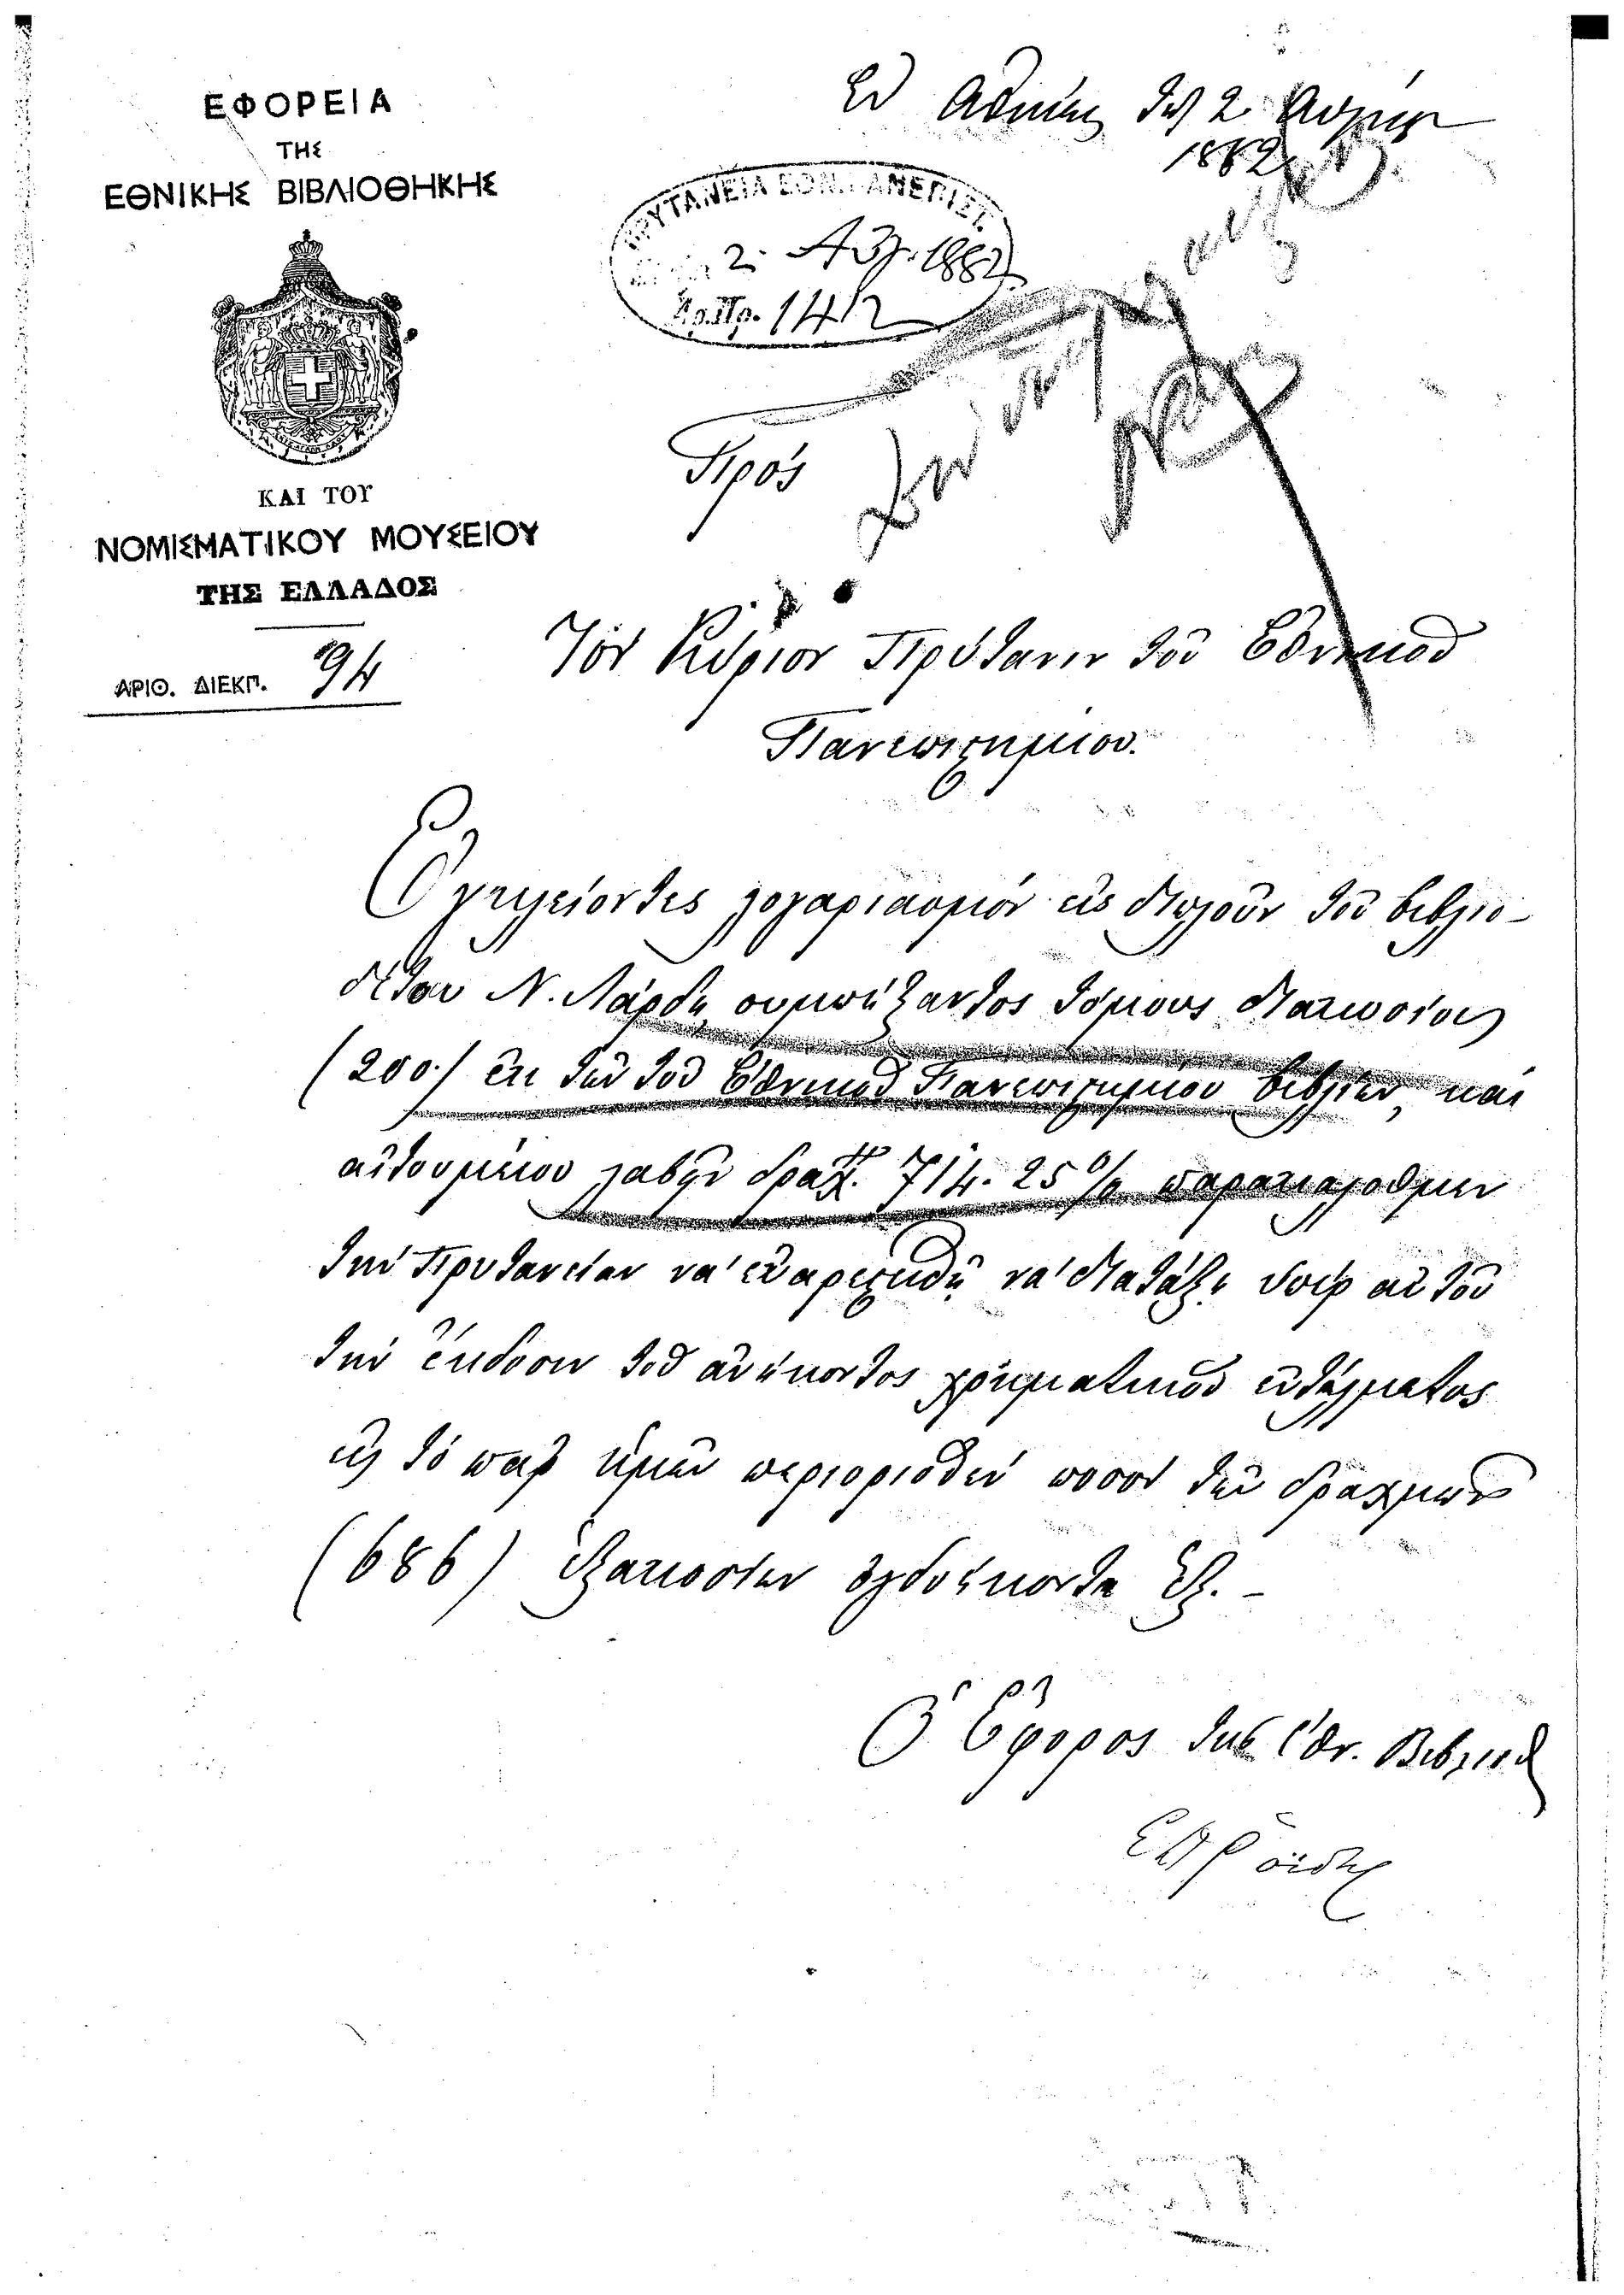 ΕΦΟΡΕΙΑ
ΤΗΣ
ΕΘΝΙΚΗΣ ΒΙΒΛΙΟΘΗΚΗΣ
ΚΑΙ ΤΟΥ
ΝΟΜΙΣΜΑΤΙΚΟΥ ΜΟΥΣΕΙΟΥ
ΤΗΣ ΕΛΛΑΔΟΣ
ΑΡΙΘ. ΔΙΕΚΠ. 94
Ἐν Ἀθήναις τῇ 2
1882
ΠΡΥΤΑΝΕΙΑ ΕΘΝ. ΠΑΝΕΠΙΣΤ.
2 Αὐγ. 1882
Ἀρ. Πρ. 1412
Πρός
Τὸν Κύριον Πρύτανιν τοῦ Ἐθνικοῦ
Πανεπιστημίου.
Ἐγκλείοντες λογαριασμὸν εἰς διπλοῦν τοῦ βιβλιο-
δέτου Ν. συμπήξαντος τόμους διακοσίους
(200) ἐκ τῶν τοῦ Ἐθνικοῦ Πανεπιστημίου βιβλίων, καὶ
αἰτουμένου λαβεῖν δραχ. 714. 25 % παρακαλοῦμεν
τὴν Πρυτανείαν νὰ εὐαρεστηθῇ νὰ διατάξῃ ὑπὲρ αὐτοῦ
τὴν ἔκδοσιν τοῦ ἀνήκοντος χρηματικοῦ ἐντάλματος
εἰς τὸ παρ' ἡμῶν περιορισθὲν ποσὸν τῶν δραχμῶν
(686) ἑξακοσίων ὀγδοήκοντα ἕξ. -
Ὁ Ἔφορος τῆς Ἐθν. Βιβλιοθ
ΕΔΡοΐδης